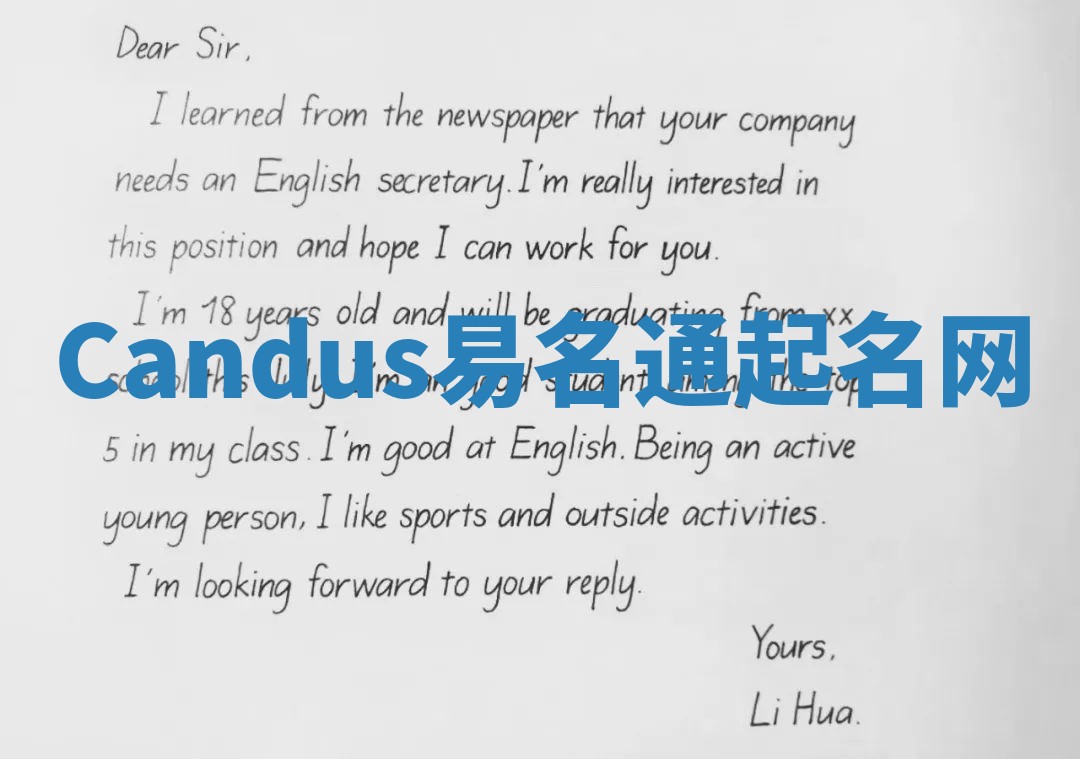 Dear Sir,
I learned from the newspaper that your company
needs an English secretary. I'm really interested in
this position and hope I can work for you.
I'm 18 years old and will be graduating from xx
Candus易名通起名网
school this July. I'm a good student among the top
5 in my class. I'm good at English. Being an active
young person, I like sports and outside activities.
I'm looking forward to your reply.
Yours,
Li Hua.